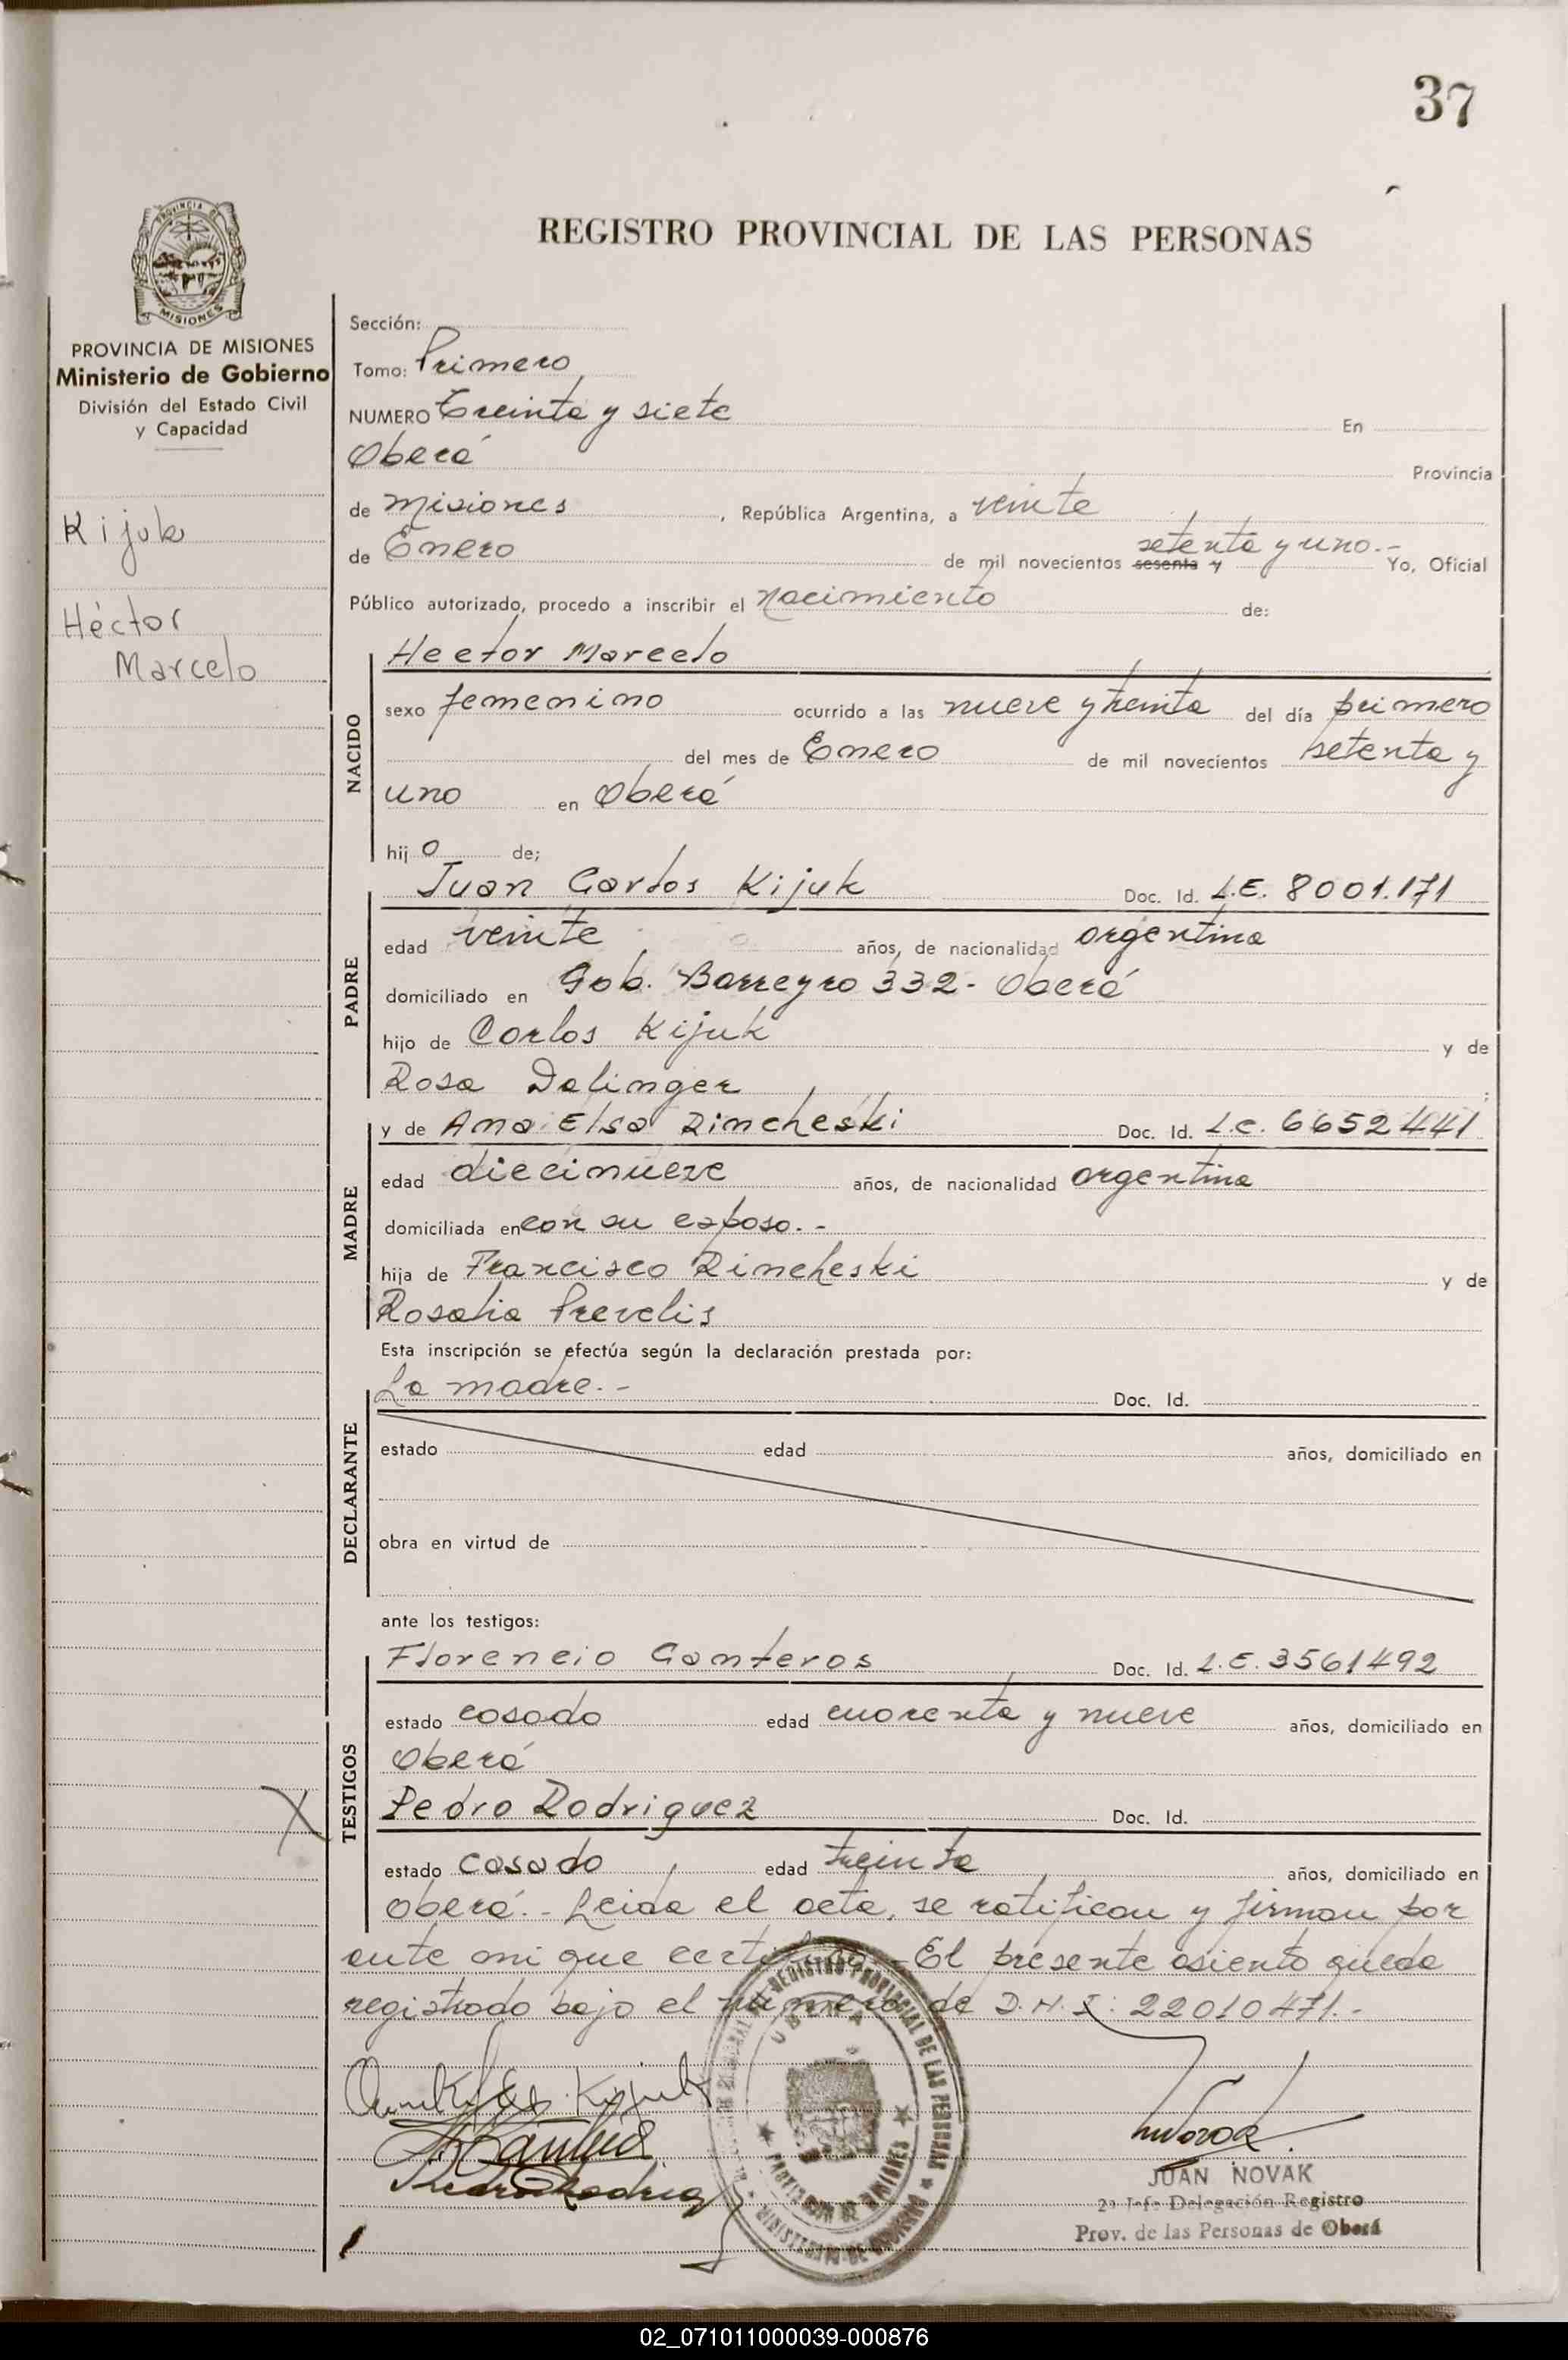 37
REGISTRO PROVINCIAL DE LAS PERSONAS
MISIONES
PROVINCIA DE MISIONES
Ministerio de Gobierno
División del Estado Civil
y Capacidad
Kijuk
Héctor
Marcelo
Sección:
Tomo: Primero
NUMERO Treinta y siete En
Oberá Provincia
de Misiones, República Argentina, a veinte
de Enero de mil novecientos sesenta y setenta y uno.- Yo, Oficial
Público autorizado, procedo a inscribir el nacimiento de:
NACIDO
Hector Marcelo
sexo femenino ocurrido a las nueve y treinta del día primero
del mes de Enero de mil novecientos setenta y
uno en Oberá
hijo de;
PADRE
Juan Carlos Kijuk Doc. Id. L.E. 8001.171
edad veinte años, de nacionalidad argentina
domiciliado en Gob. Barreyro 332- Oberá
hijo de Carlos Kijuk y de
Rosa Dalinger;
MADRE
y de Ana Elsa Rincheski Doc. Id. L.C. 6652441
edad diecinueve años, de nacionalidad argentina
domiciliada en con su esposo.-
hija de Francisco Rincheski y de
Rosalia Prevelis
Esta inscripción se efectúa según la declaración prestada por:
DECLARANTE
La madre.- Doc. Id.
estado edad años, domiciliado en
obra en virtud de
ante los testigos:
TESTIGOS
Florencio Canteros Doc. Id. L.E. 3561492
estado casado edad cuarenta y nueve años, domiciliado en
Oberá
Pedro Rodriguez Doc. Id.
estado casado edad treinta años, domiciliado en
Oberá.- Leida el acta, se ratifican y firman por
ante mi que certifico.- El presente asiento queda
registrado bajo el número de D.N.I: 22010471.-
JUAN NOVAK
2º Jefe Delegación Registro
Prov. de las Personas de Oberá
02_071011000039-000876